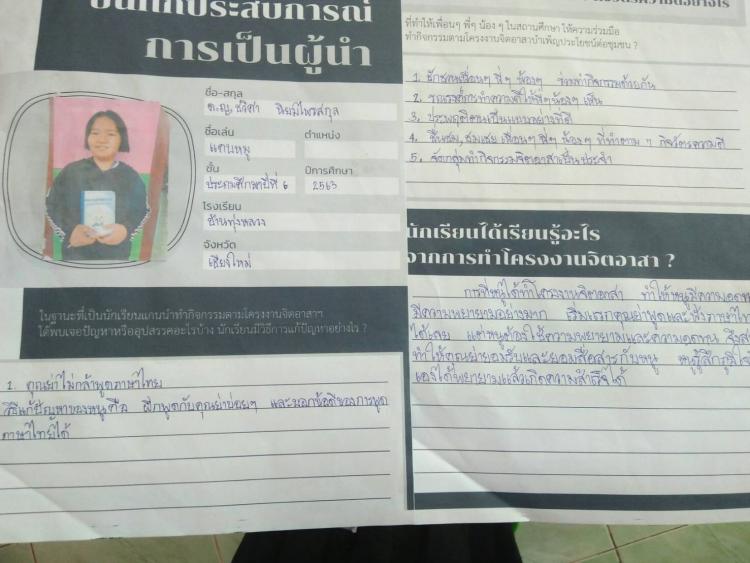 บันทึกประสบการณ์
การเป็นผู้นำ
ชื่อ-สกุล
ด.ญ. ชวิศา
ชื่อเล่น
ตำแหน่ง
แตนหมู
ชั้น
ปีการศึกษา
ประถมศึกษาปีที่ 6
2563
โรงเรียน
บ้านทุ่งหลวง
จังหวัด
เชียงใหม่
ในฐานะที่เป็นนักเรียนแกนนำทำกิจกรรมตามโครงงานจิตอาสาฯ
ได้พบเจอปัญหาหรืออุปสรรคอะไรบ้าง นักเรียนมีวิธีการแก้ปัญหาอย่างไร ?
1. คุณย่าไม่กล้าพูดภาษาไทย
วิธีแก้ปัญหาของหนูคือ ฝึกพูดกับคุณย่าบ่อยๆ และบอกข้อดีของการพูด
ภาษาไทยได้
ที่ทำให้เพื่อนๆ พี่ๆ น้อง ๆ ในสถานศึกษา ให้ความร่วมมือ
ทำกิจกรรมตามโครงงานจิตอาสาบำเพ็ญประโยชน์ต่อชุมชน ?
1. ชักชวนเพื่อนๆ พี่ๆ น้องๆ ร่วมทำกิจกรรมด้วยกัน
2. รณรงค์การทำความดีให้พี่ๆน้องๆ เห็น
3. ประพฤติตนเป็นแบบอย่างที่ดี
4. ชื่นชม, ชมเชย เพื่อนๆ พี่ๆ น้องๆ ที่ทำตาม 7 กิจวัตรความดี
5. จัดกลุ่มทำกิจกรรมจิตอาสาเป็นประจำ
นักเรียนได้เรียนรู้อะไร
จากการทำโครงงานจิตอาสา ?
การที่หนูได้ทำโครงงานจิตอาสา ทำให้หนูมีความอดทน
มีความพยายามอย่างมาก เริ่มแรกคุณย่าพูดและฟังภาษาไทย
ได้เลย แต่หนูต้องใช้ความพยายามและความอดทน จึง
ทำให้คุณย่ายอมรับและยอมสื่อสารกับหนู หนูรู้สึกภูมิใจ
เองได้พยายามแล้วเกิดความสำเร็จได้